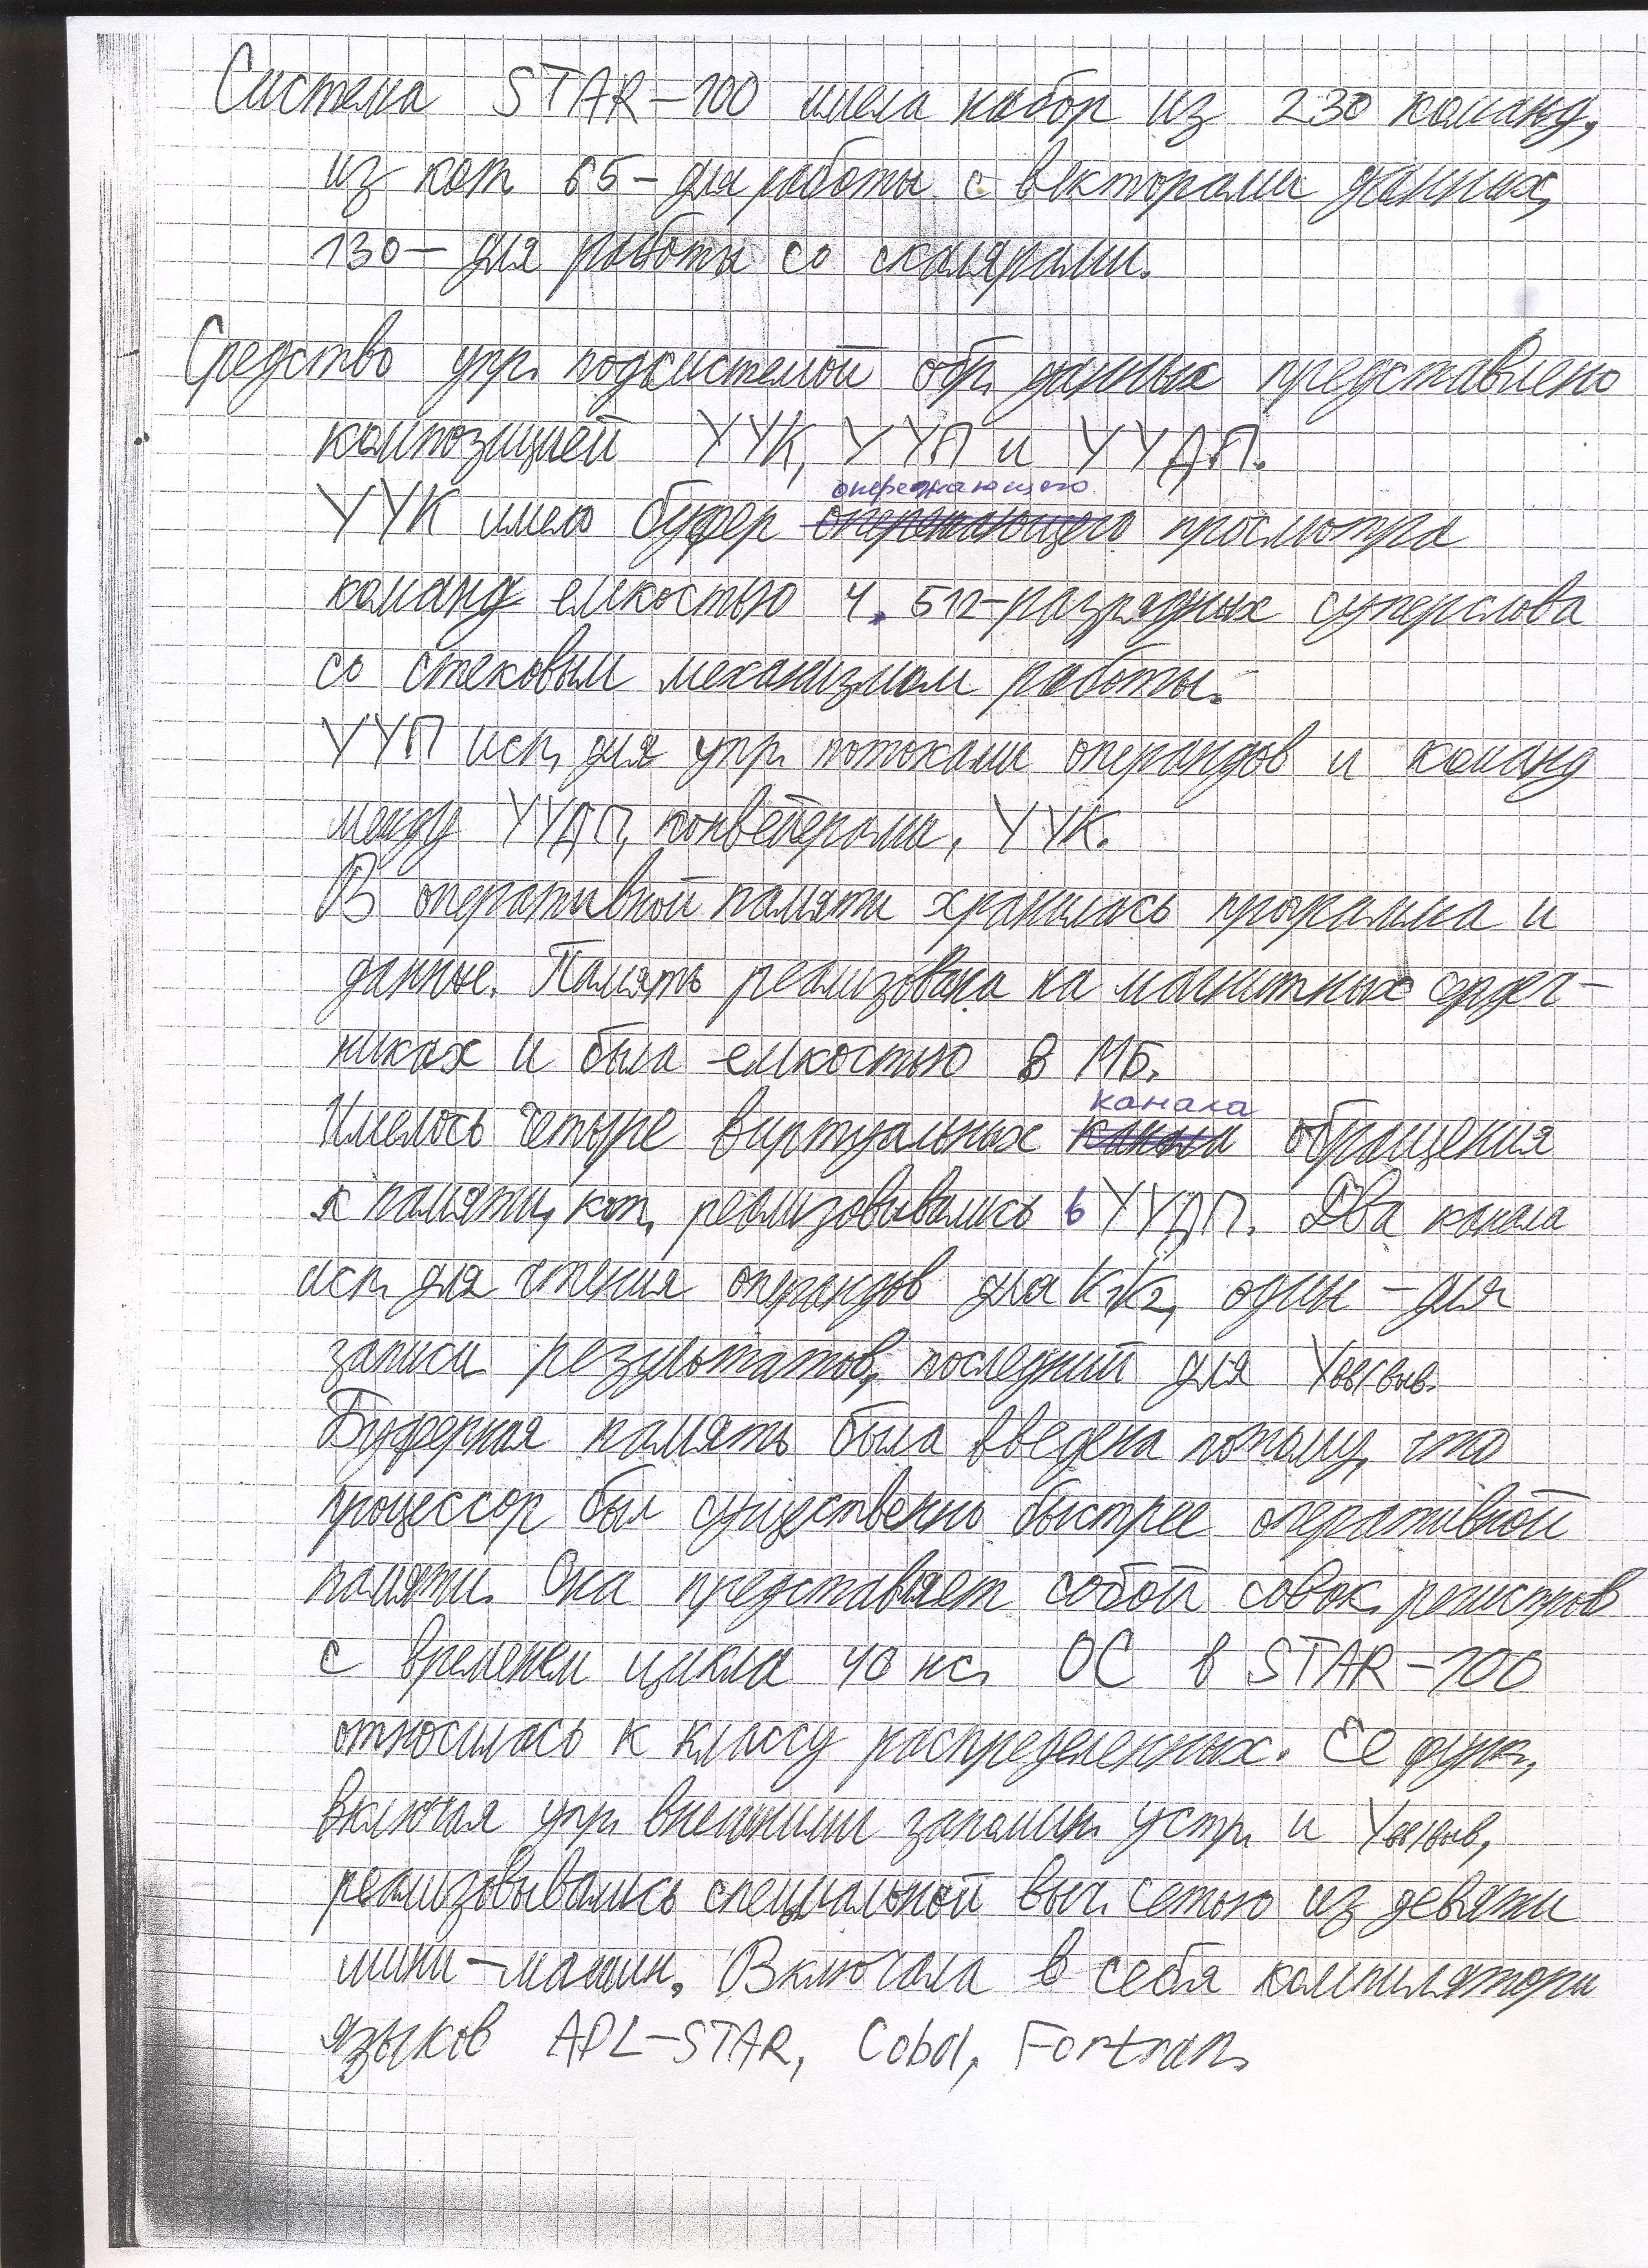 Система STAR-100 имела набор из 230 команд,
из кот. 65 - для работы с векторами данных,
130 - для работы со скалярами.
Средство упр. подсистемой обр. данных представлено
композицией УУК, УУП и УУДП.
опережающего
УУК имело буфер просмотра
команд емкостью 4, 512-разрядных суперслова
со стековым механизмом работы.
УУП исп. для упр. потоками операндов и команд
между УУДП, конвейерами, УУК.
В оперативной памяти хранилась программа и
данные. Память реализована на магнитных сердеч-
никах и была емкостью 8 МБ.
канала
Имелось четыре виртуальных канала обращения
к памяти, кот. реализовывались в УУДП. Два канала
исп. для чтения операндов для К1К2, один - для
записи результатов, последний для Увв/выв.
Буферная память была введена потому, что
процессор был существенно быстрее оперативной
памяти. Она представляет собой совок. регистров
с временем цикла 40 нс. ОС в STAR-100
относилась к классу распределенных. Ее функ.,
включая упр. внешними запомин. устр. и Увв/выв,
реализовывались специальной выч. сетью из девяти
мини-машин. Включала в себя компиляторы
языков APL-STAR, Cobol, Fortran.